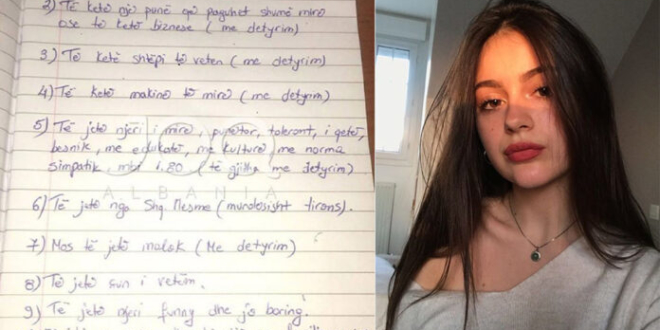 2) Të ketë një punë që paguhet shumë mirë
ose të ketë biznese (me detyrim)
3) Të ketë shtëpi të veten (me detyrim)
4) Të ketë makinë të mirë (me detyrim)
5) Të jetë njeri i mirë, punëtor, tolerant, i qetë,
besnik, me edukatë, me kulturë, me norma
simpatik, mbi 1.80 (të gjitha me detyrim)
ALBANIA
6) Të jetë nga Shq. Mesme (mundësisht tirons).
7) Mos të jetë malok (Me detyrim)
8) Të jetë sun i vetëm.
9) Të jetë njeri funny dhe jo boring.